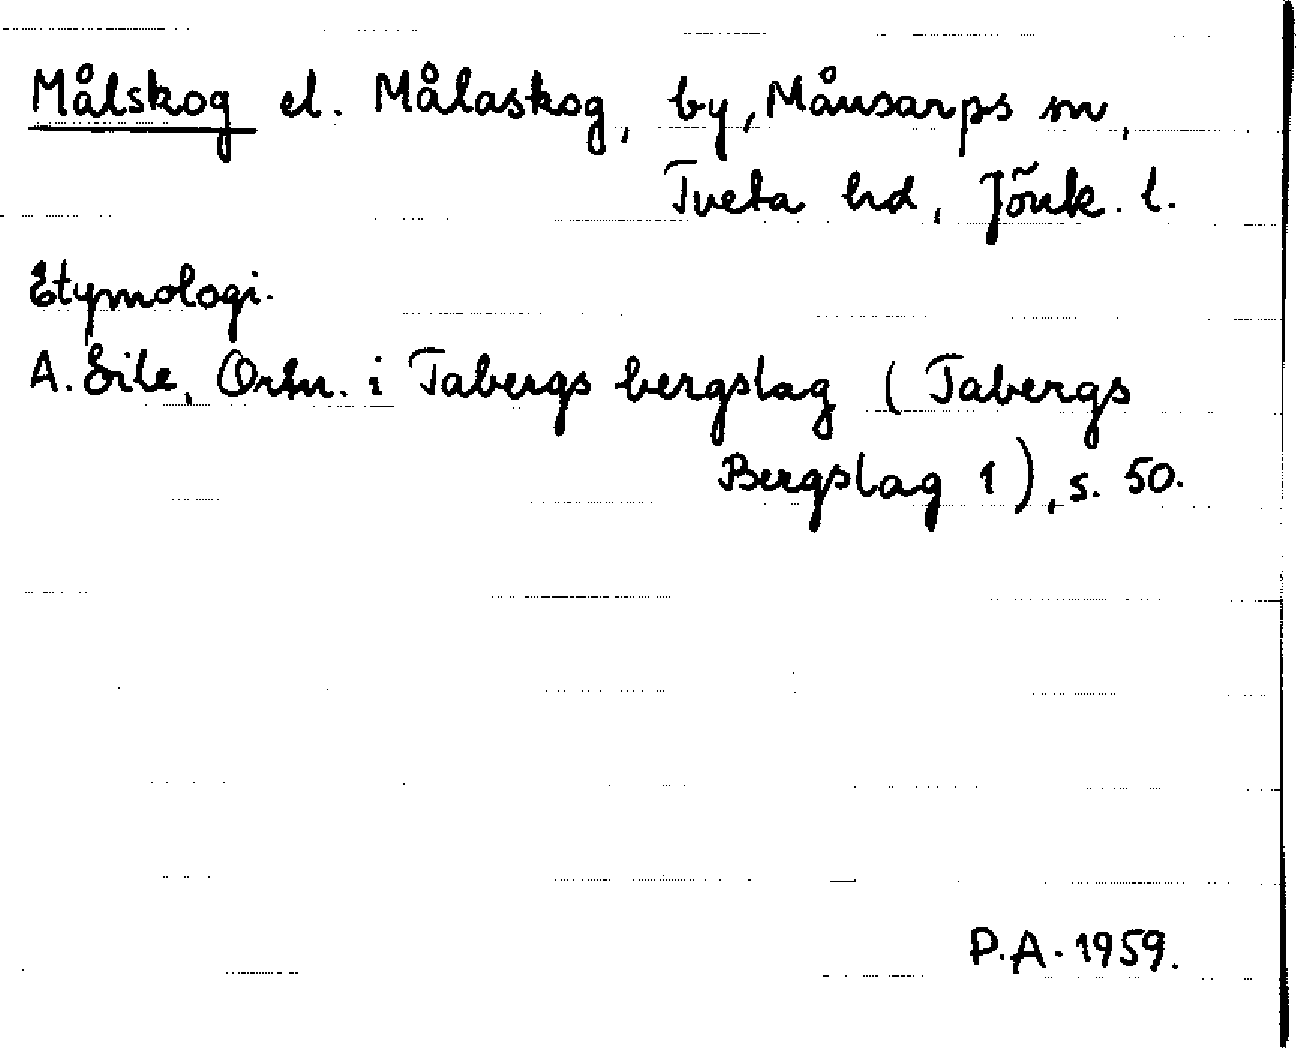 Målskog el. Målaskog, by, Månsarps sn,
Tveta hd, Jönk. l.
Etymologi.
A. Eile, Ortn. i Tabergs bergslag (Tabergs
Bergslag 1), s. 50.
P.A. 1959.